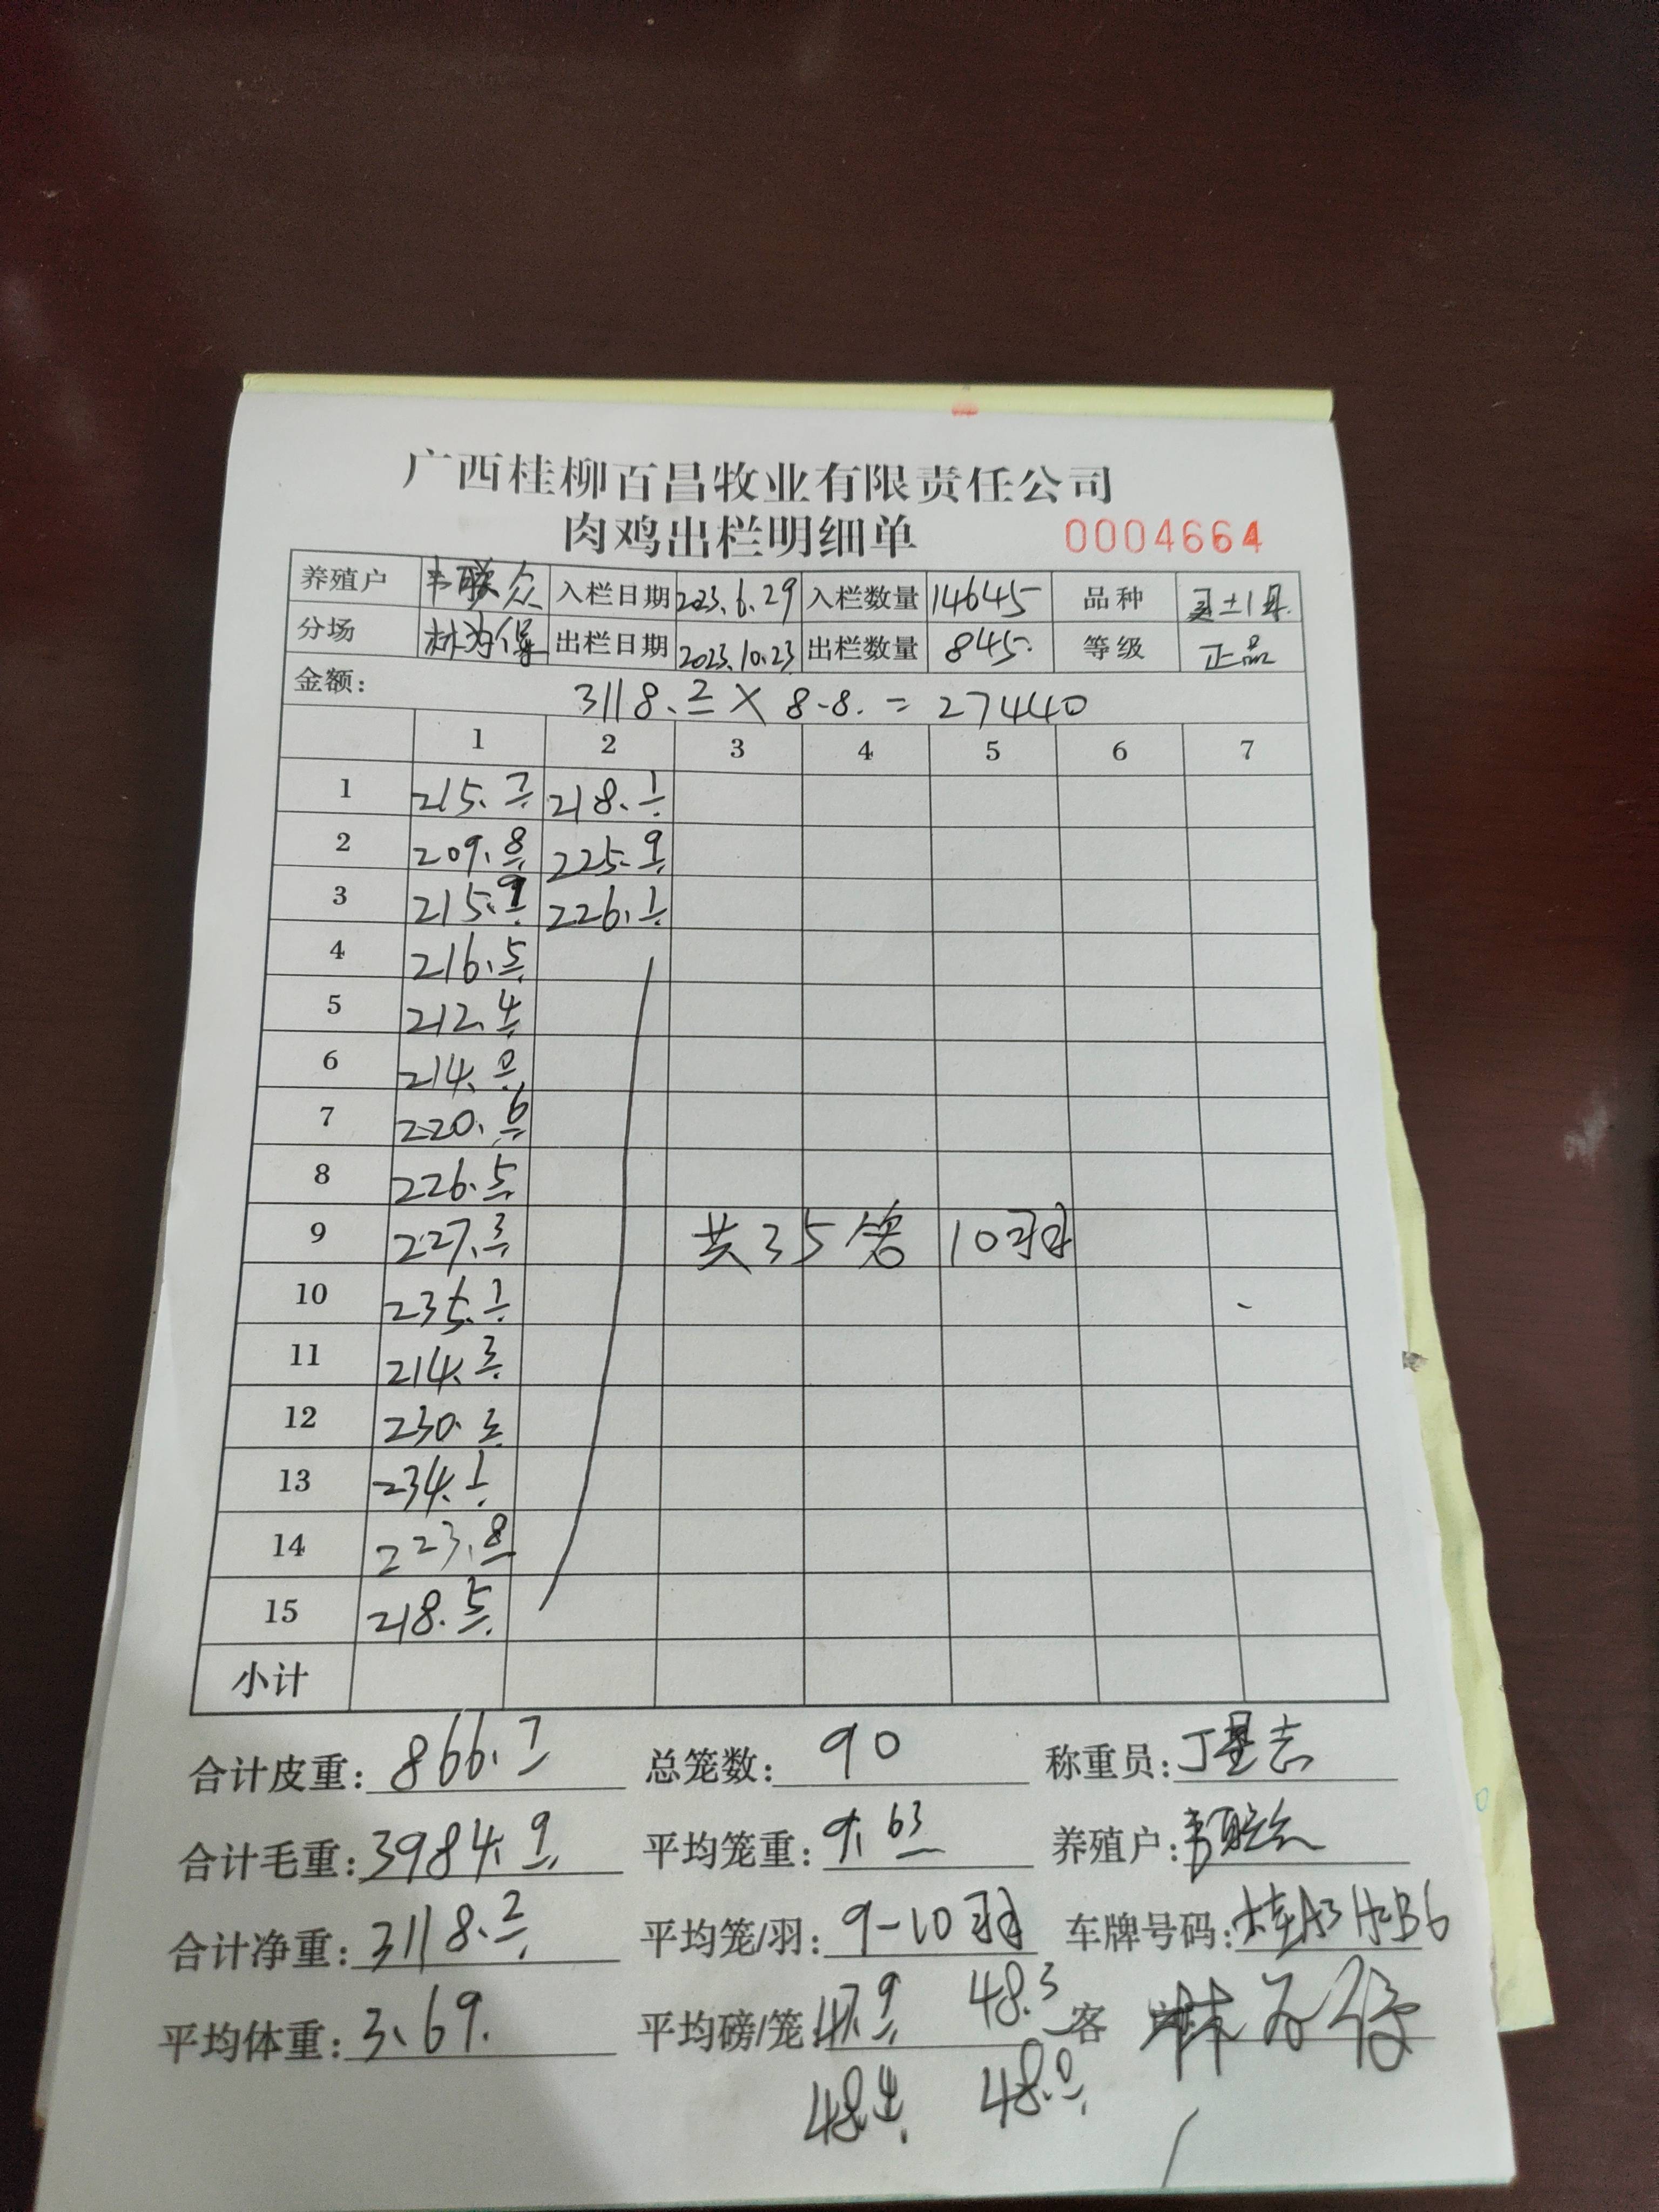 广西桂柳百昌牧业有限责任公司
肉鸡出栏明细单 0004664
养殖户 韦联众 入栏日期 2023.6.29 入栏数量 14645 品种
分场 出栏日期 2023.10.23 出栏数量 845 等级 正品
金额: 3118.2 X 8.8. = 27440
1 2 3 4 5 6 7
1 215.7 218.1
2 209.8 225.9
3 215.9 226.1
4 216.5
5 212.4
6 214.0
7 220.6
8 226.5
9 227.3 共35 10羽
10 235.1
11 214.3
12 230.3
13 234.1
14 223.8
15 218.5
小计
合计皮重: 866.7 总笼数: 90 称重员:
合计毛重: 3984.9 平均笼重: 9.63 养殖户: 韦联众
合计净重: 3118.2 平均笼/羽: 9-10羽 车牌号码:
平均体重: 3.69. 平均磅/笼 47.9 48.3 客
48.4 48.0